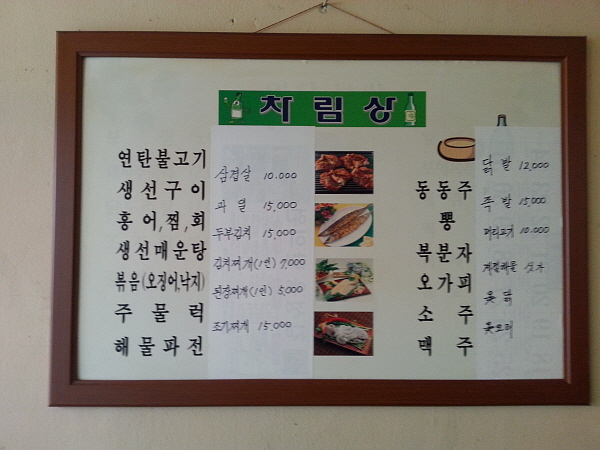 차림상
연탄불고기
생선구이
홍어,찜,회
생선매운탕
볶음(오징어,낙지)
주물럭
해물파전
삼겹살 10.000
과일 15,000
두부김치 15,000
김치찌개(1인) 7,000
된장찌개(1인) 5,000
조기찌개 15,000
동동주
뽕
복분자
오가피
소주
맥주
닭발 12,000
족발 15,000
머리고기 10.000
계절나물 싯가
옻닭
옻오리